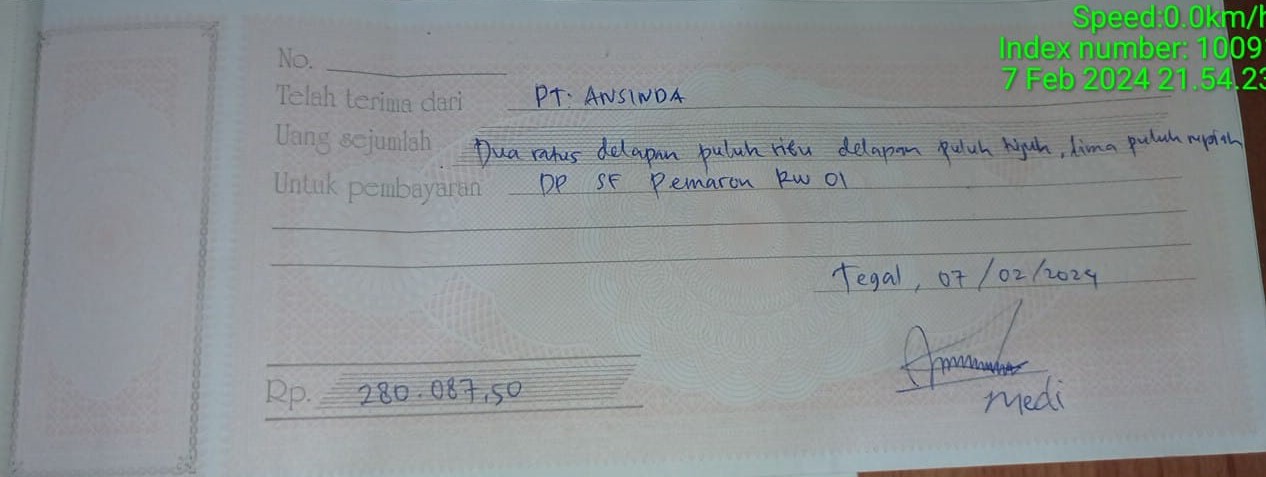 Speed:0.0km/h
Index number: 1009
7 Feb 2024 21.54.23
No.
Telah terima dari PT. ANSINDA
Uang sejumlah Dua ratus delapan puluh ribu delapan puluh tujuh, lima puluh rupiah
Untuk pembayaran DP SF Pemaron RW 01
Tegal, 07/02/2024
Rp. 280.087,50
Medi